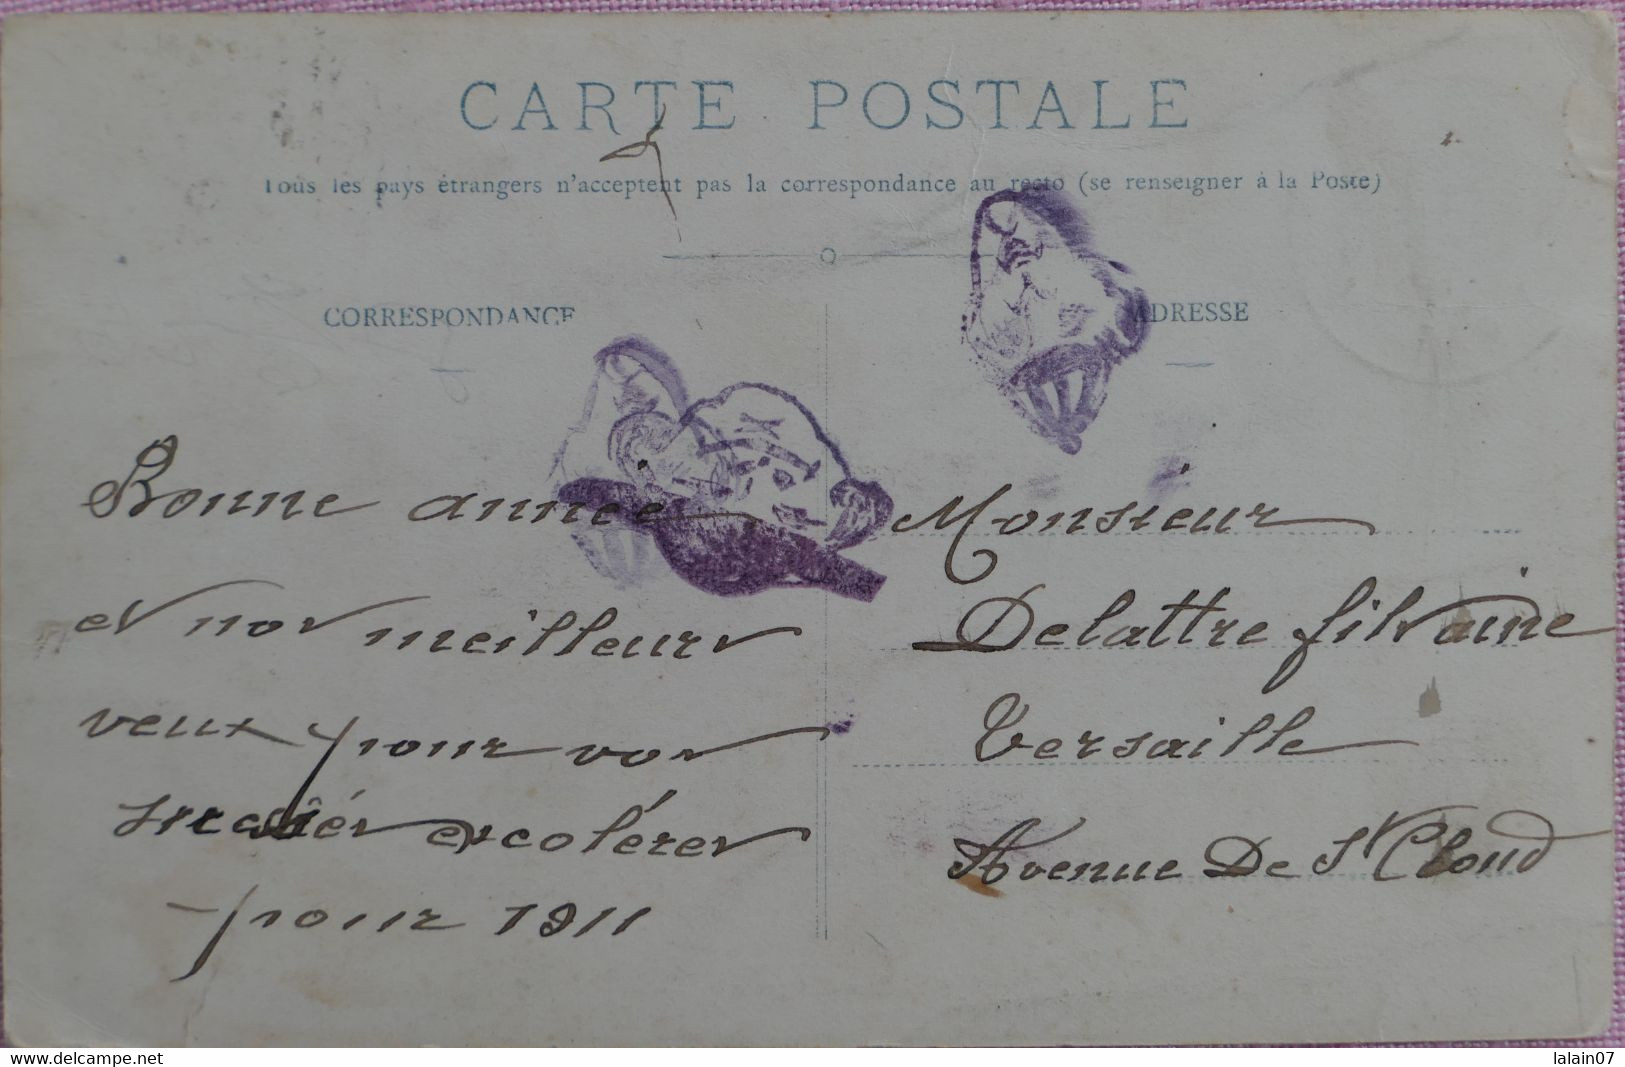 CARTE POSTALE
Tous les pays étrangers n'acceptent pas la correspondance au recto (se renseigner à la Poste)
CORRESPONDANCE
Bonne année
et nos meilleurs
veux pour vos
et colérer
pour 1911
ADRESSE
Monsieur
Delattre
Versaille
Avenue De St Cloud
www.delcampe.net
lalain07